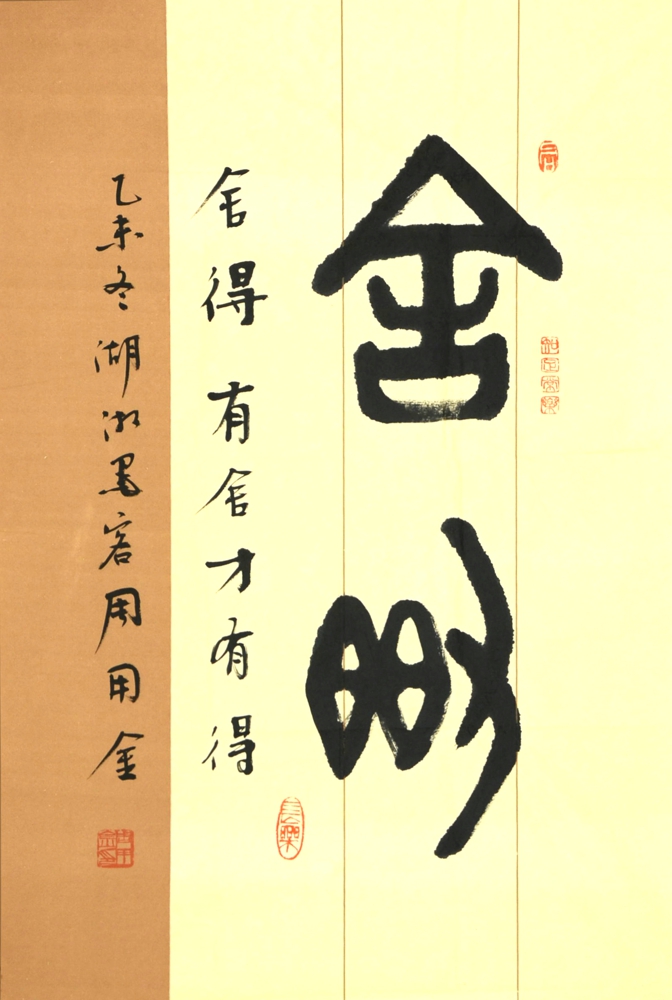 舍得
舍得 有舍才有得
乙未冬湖湘墨客周用金